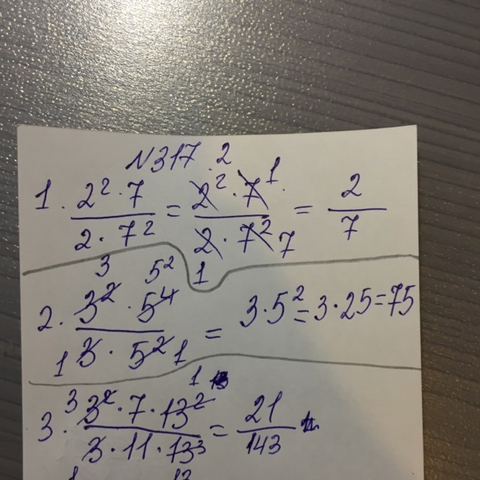 N317.
1. 2² · 7 / 2 · 7² = 2² · 7 / 2 · 7² = 2/7
2. 3² · 5⁴ / 3 · 5² = 3 · 5² = 3 · 25 = 75
3. 3² · 7 · 13² / 3 · 11 · 13³ = 21/143